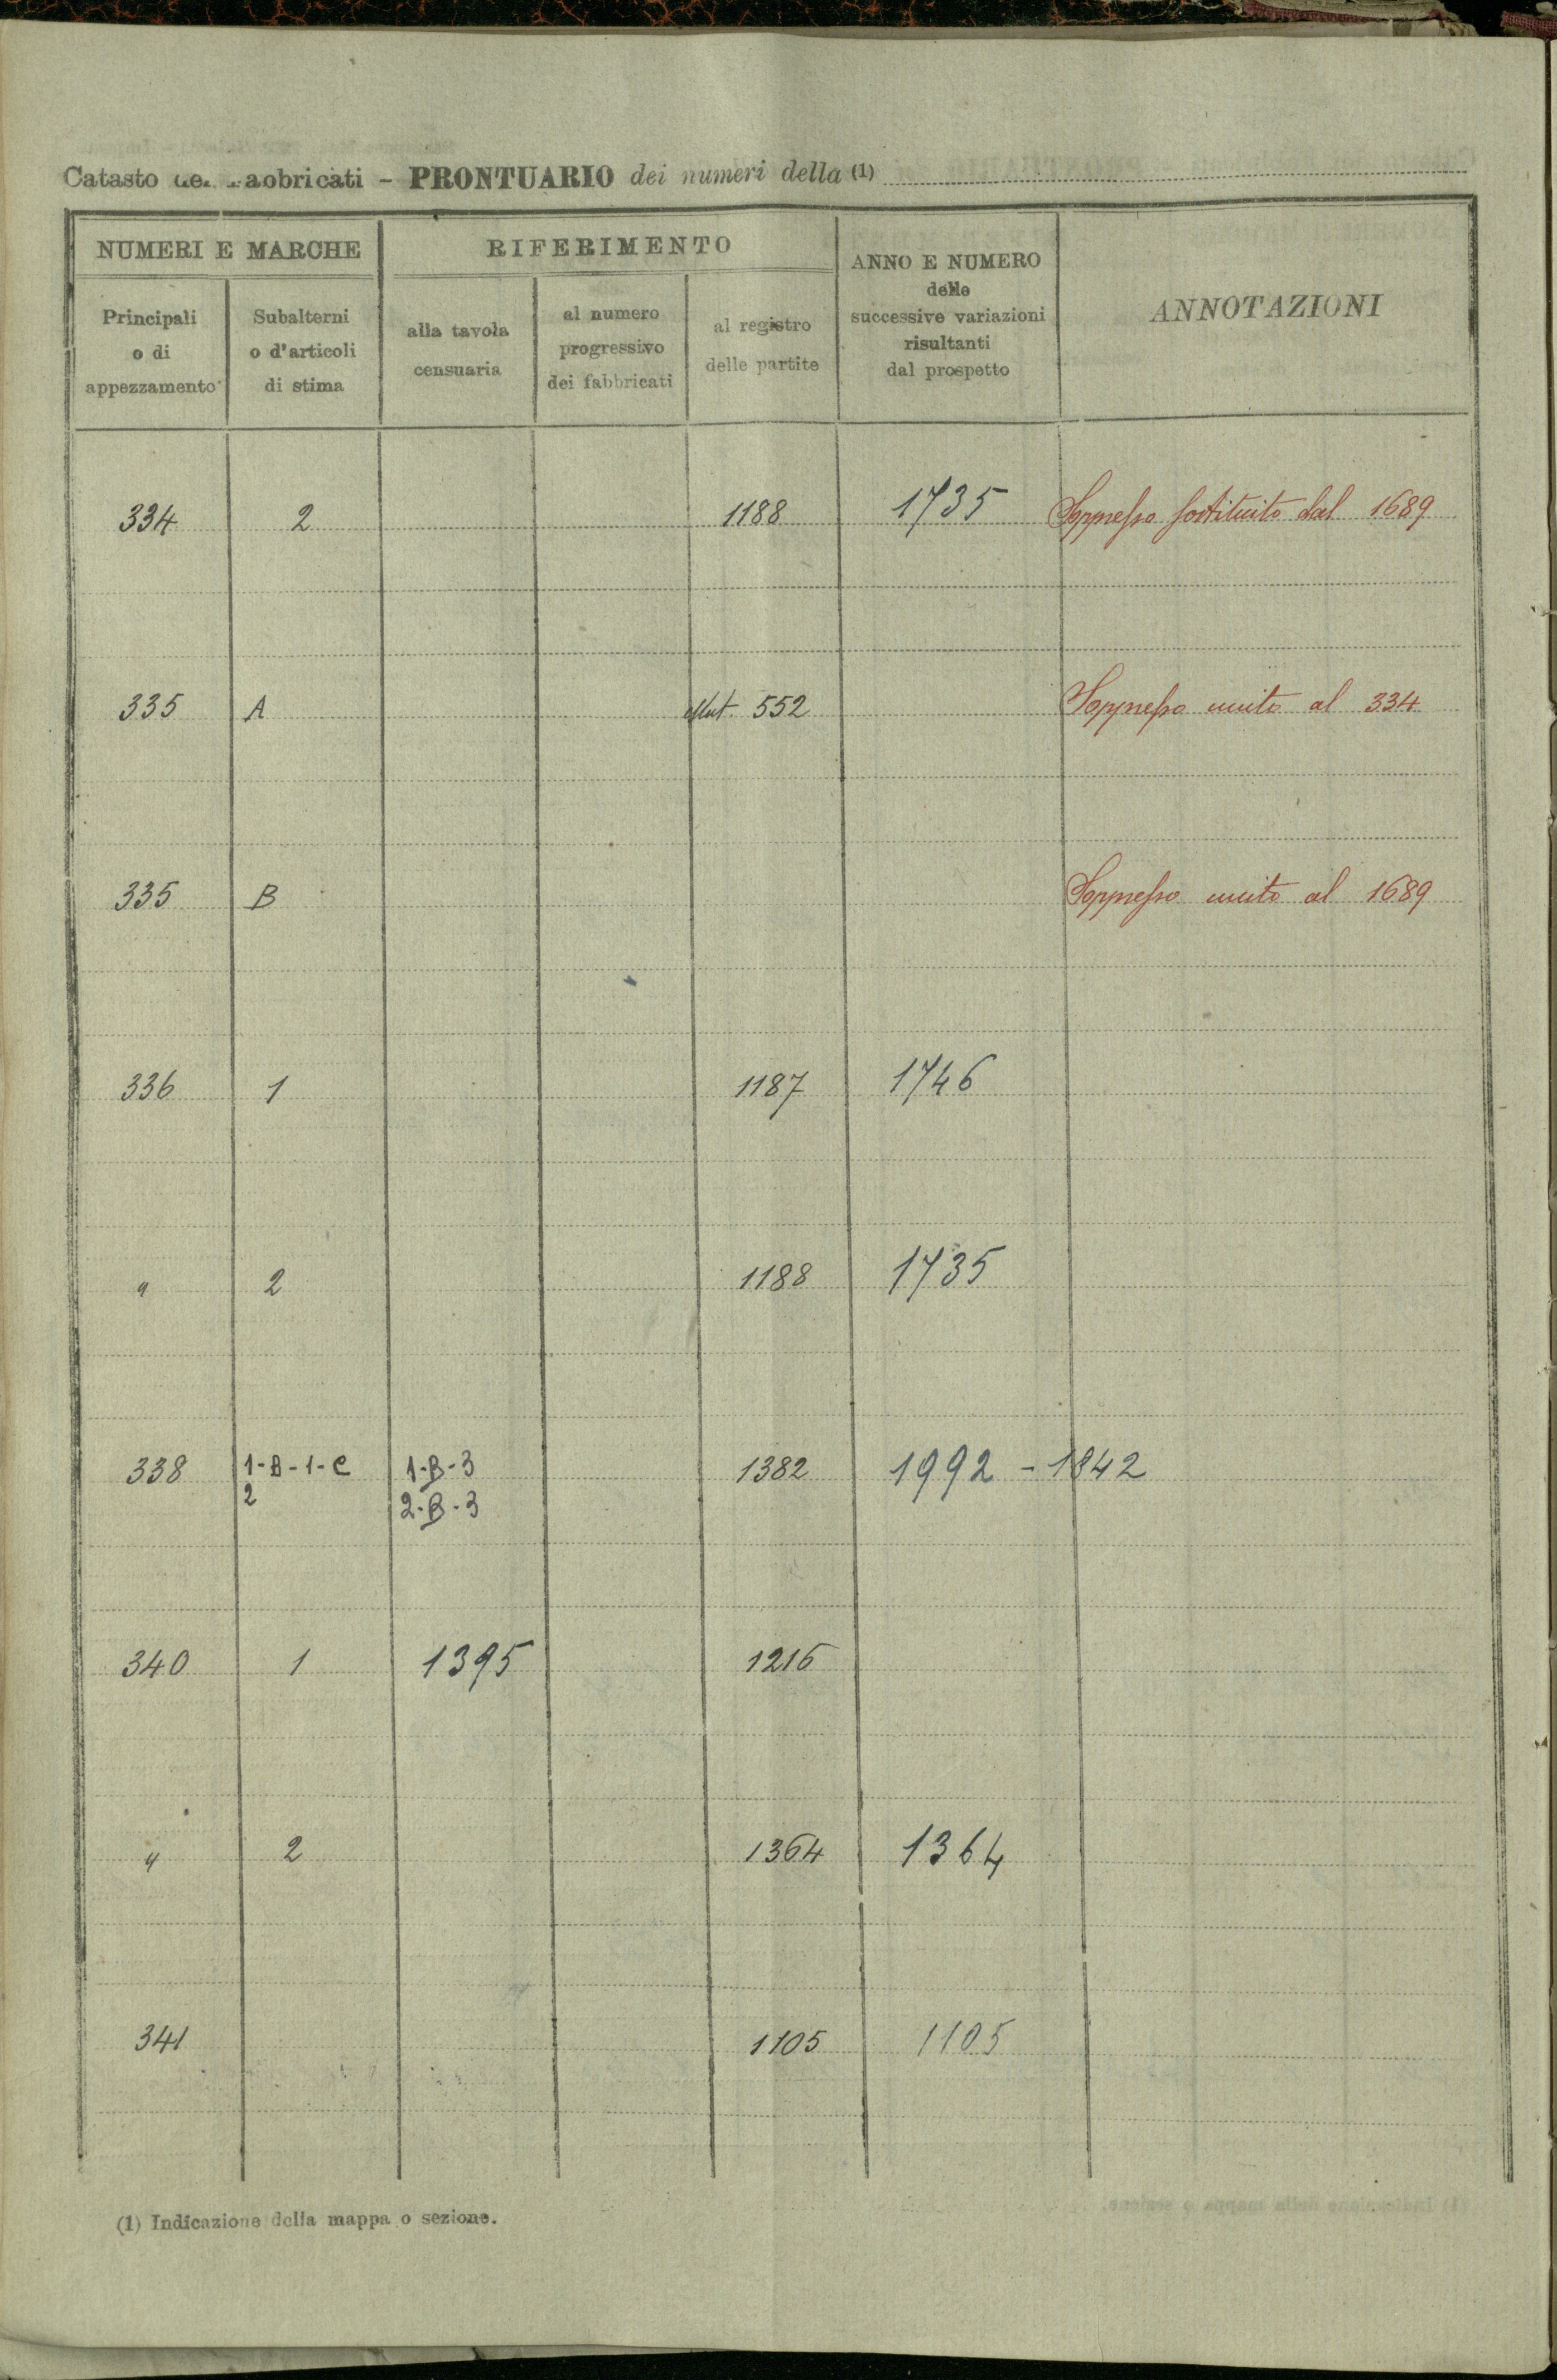 Catasto dei Fabbricati - PRONTUARIO dei numeri della (1)
NUMERI E MARCHE
RIFERIMENTO
ANNO E NUMERO
delle
successive variazioni
risultanti
dal prospetto
ANNOTAZIONI
Principali
o di
appezzamento
Subalterni
o d'articoli
di stima
alla tavola
censuaria
al numero
progressivo
dei fabbricati
al registro
delle partite
334 2 1188 1735 Soppresso sostituito dal 1689
335 A Mut. 552 Soppresso unito al 334
335 B Soppresso unito al 1689
336 1 1187 1746
" 2 1188 1735
338 1-B-1-C 1-B-3 1382 1992 - 1842
2 2-B-3
340 1 1395 1216
" 2 1364 1364
341 1105 1105
(1) Indicazione della mappa o sezione.